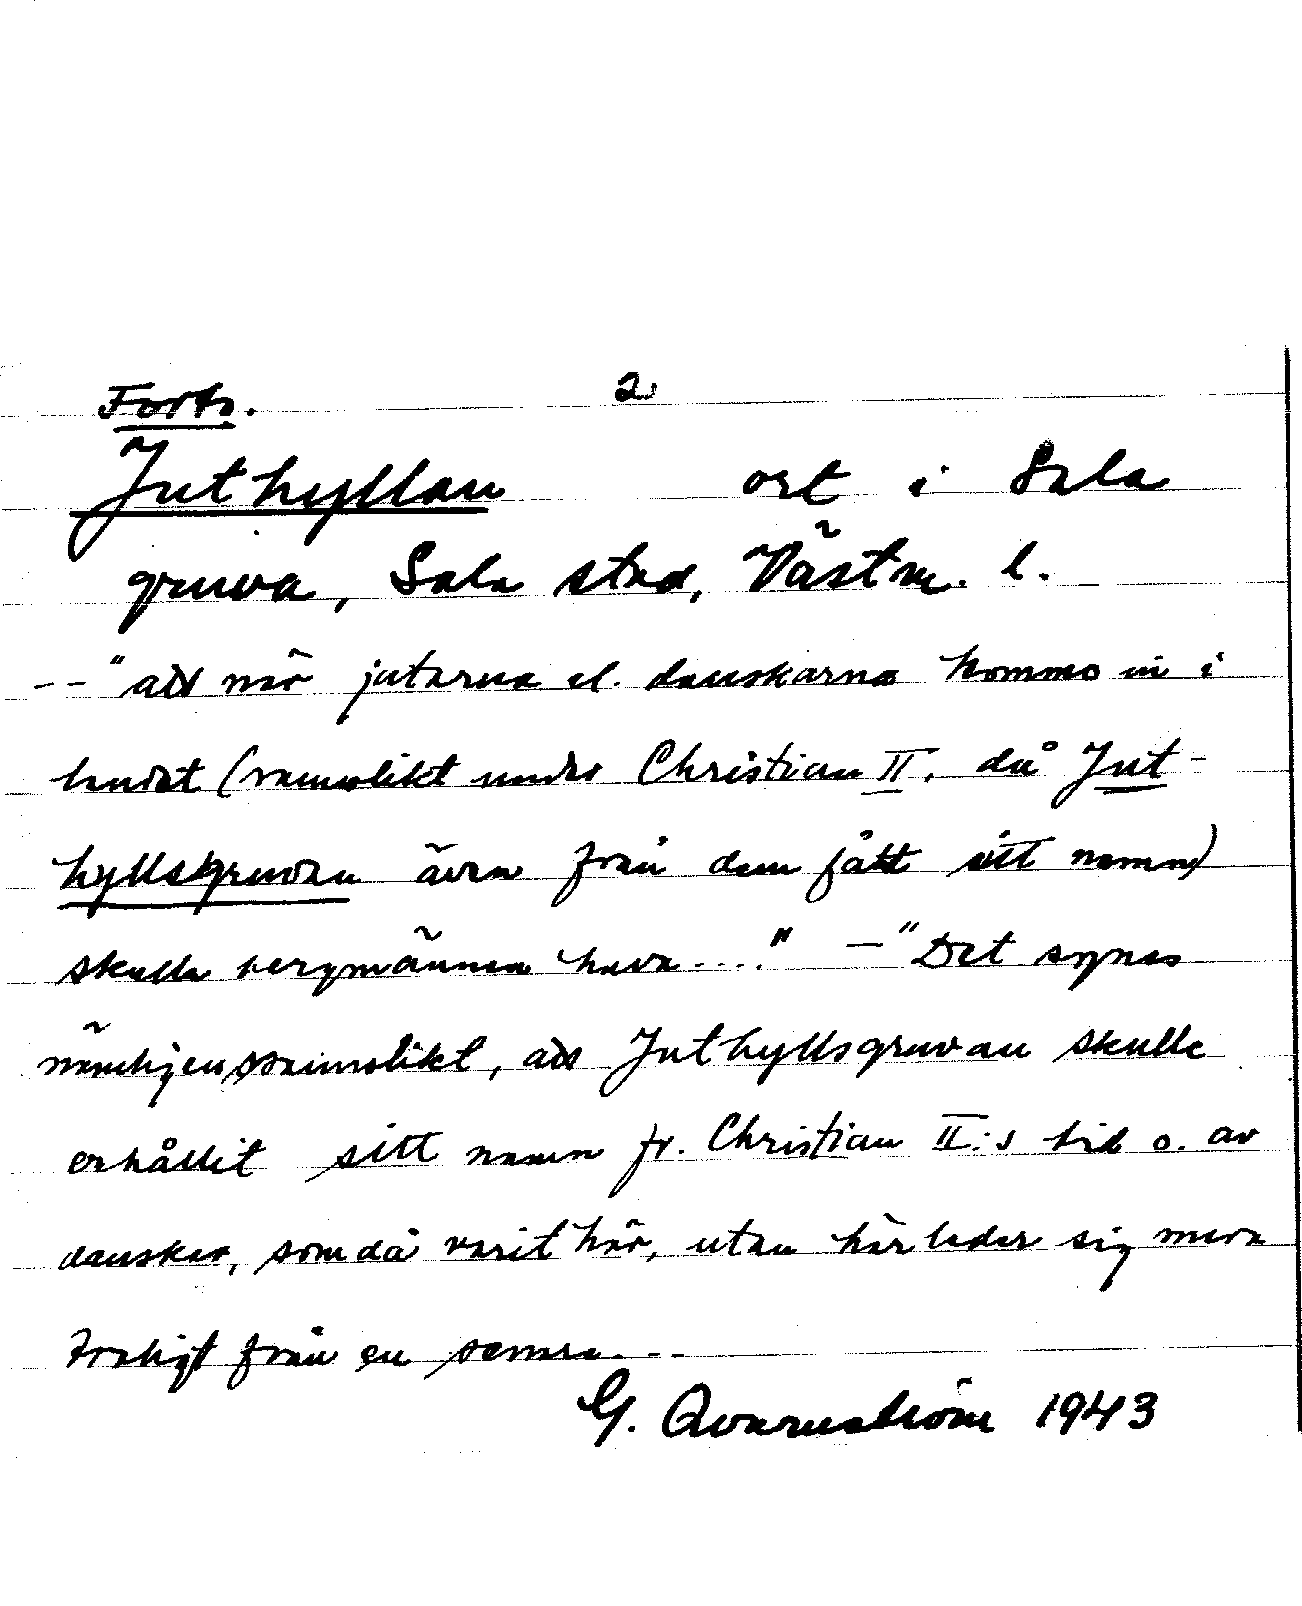 Forts. 2
Juthyllan ort i Sala
gruva, Sala stad, Västm. l.
-- "att när jutarna el. danskarna kommo in i
landet (sannolikt under Christian II, då Jut-
hyllsgruvan även från dem fått sitt namn)
skulle bergmännen hava ...." — "Det synes
nämligen sannolikt, att Juthyllsgruvan skulle
erhållit sitt namn fr. Christian II:s tid o. av
danskar, som då varit här, utan härleder sig mera
troligt från en senare. --
G. Qvarnström 1943